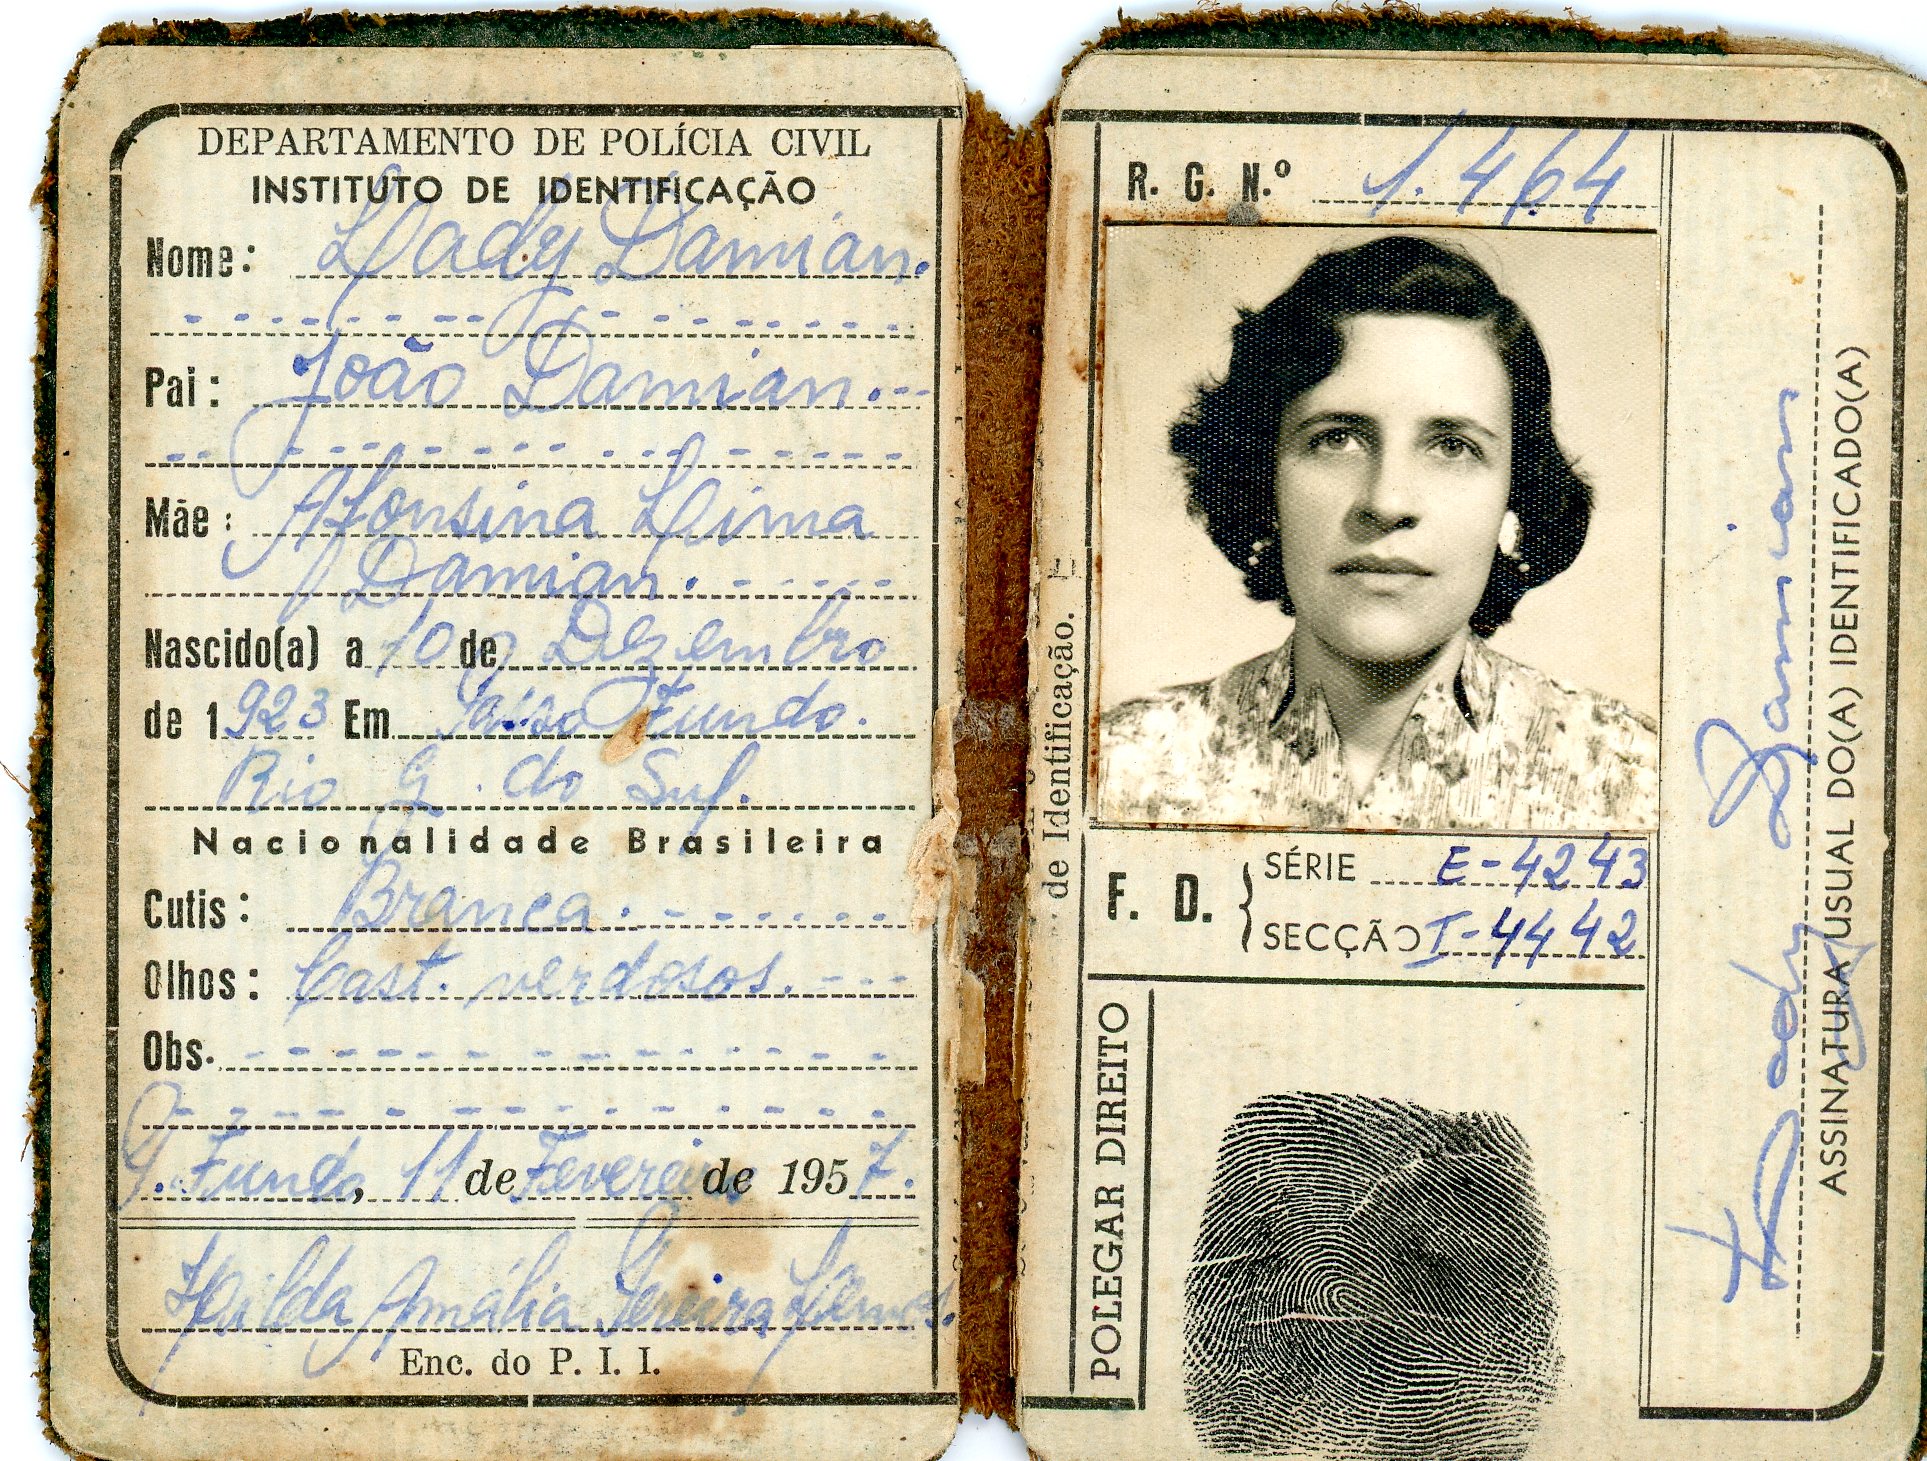 DEPARTAMENTO DE POLÍCIA CIVIL
INSTITUTO DE IDENTIFICAÇÃO
Nome: Lady Damian.
Pai: João Damian.
Mãe: Afonsina Lima
Damian.
Nascido(a) a 10 de Dezembro
de 1923 Em Passo Fundo.
Rio G. do Sul.
Nacionalidade Brasileira
Cutis: Branca.
Olhos: Cast. verdosos.
Obs.
P. Fundo, 11 de Fevereiro de 1957.
Hilda Amália Pereira Lemos.
Enc. do P. I. I.
de Identificação.
R. G. N.º 1.464
F. D.
SÉRIE E-4243
SECÇÃO I-4442
POLEGAR DIREITO
Lady Damian
ASSINATURA USUAL DO(A) IDENTIFICADO(A)